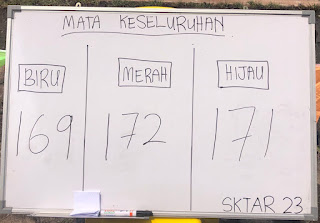 MATA KESELURUHAN
BIRU MERAH HIJAU
169 172 171
SKTAR 23